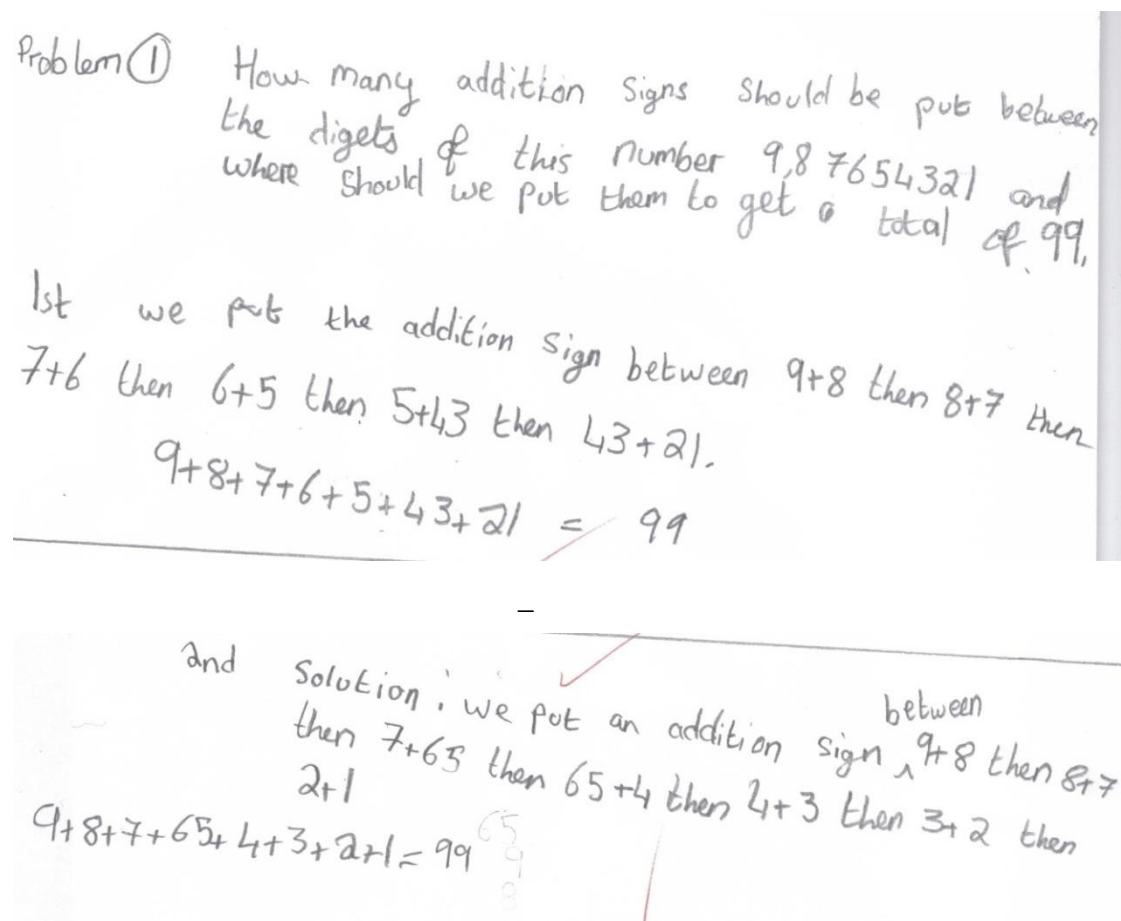 Problem ① How many addition signs should be put between
the digets of this number 9,87654321 and
where should we put them to get a total of 99.
1st we put the addition sign between 9+8 then 8+7 then
7+6 then 6+5 then 5+43 then 43+21.
9+8+7+6+5+43+21 = 99
–
2nd Solution: we put an addition sign ^ between 9+8 then 8+7
then 7+65 then 65+4 then 4+3 then 3+2 then
2+1
9+8+7+65+4+3+2+1=99
65
9
8